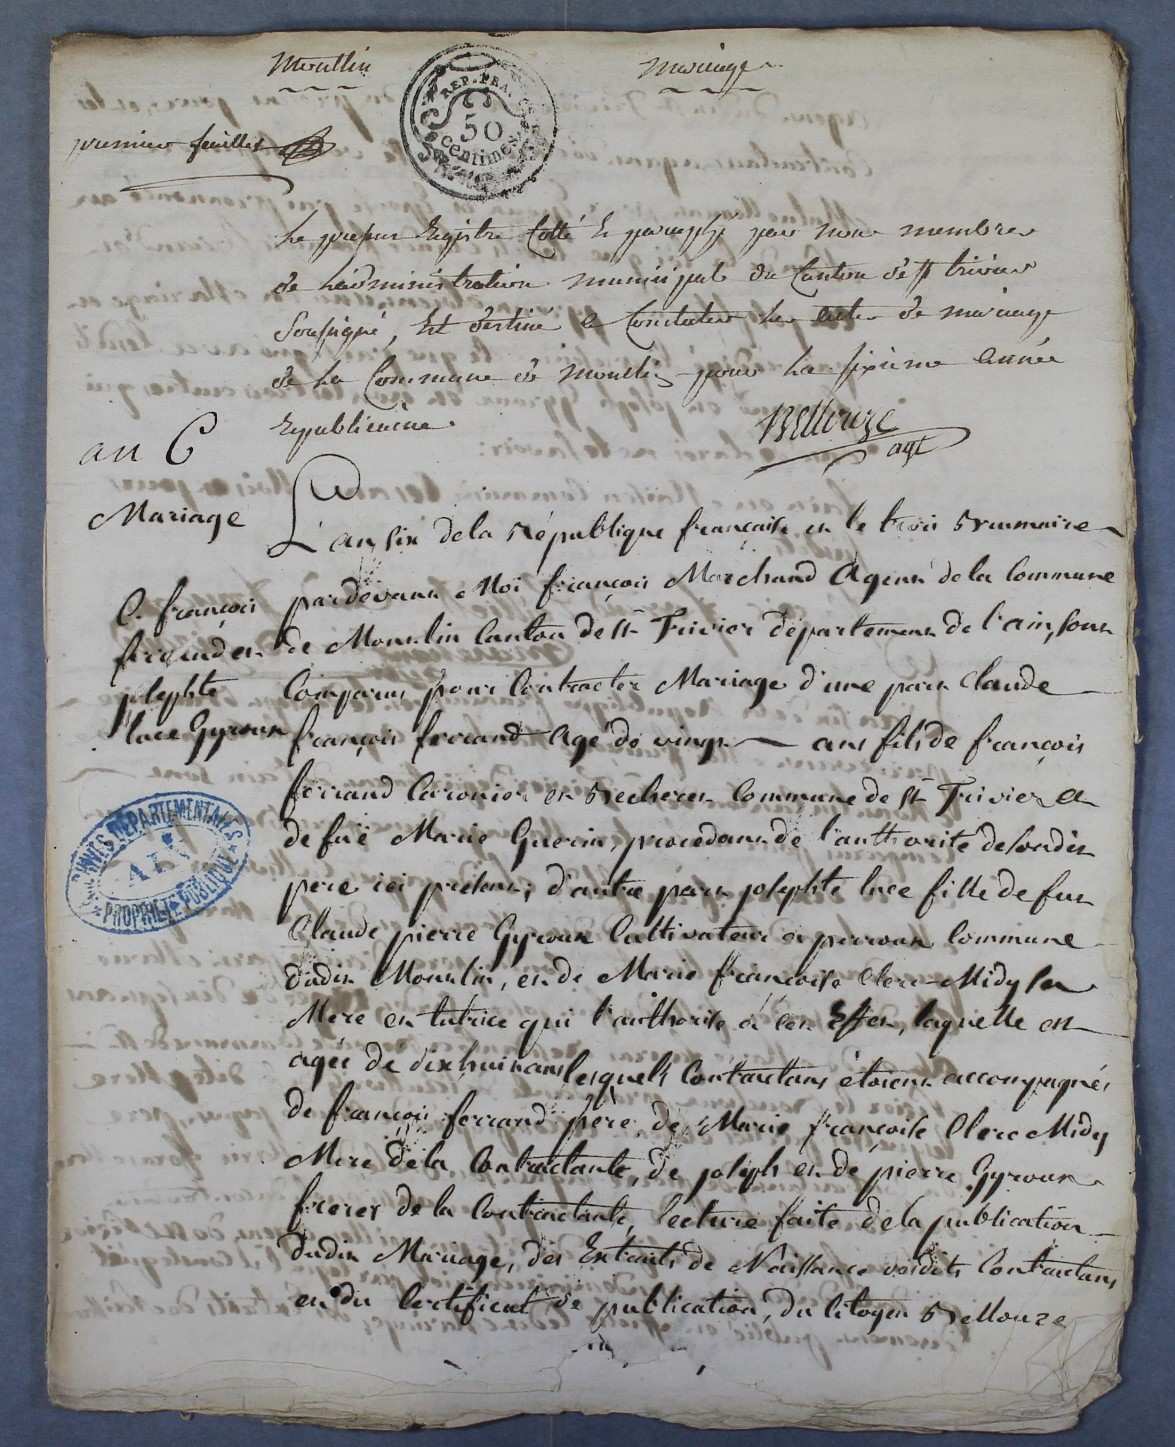 Moullin
Mariage
REP. FRA.
50
centimes
premier feuillet
Le présent Registre Cotté & paraphé par nous membre
de L'administration municipale du Canton de St trivier
Soussigné, Est destiné a Constater les actes de mariage
de la Commune de Moullin pour la sixième année
Republicaine.
Bellouze
agt
an 6
Mariage
C. françois
ferrand et
josephte
luce Gyroux
L'an six de la République française et le trois Brumaire
pardevant Moi françois Marchand Agent de la Commune
de Moullin Canton de St Trivier département de l'ain, sont
Comparus pour Contracter Mariage d'une part Claude
françois ferrand Agé de vingt ans fils de françois
ferrand en Commune de St Trivier &
de fuë Marie Guerin, procedant de l'authorité de sondit
pere ici présent; d'autre part josephte luce fille de fut
Claude pierre Gyroux Cultivateur a perroux Commune
dudit Moullin, et de Marie françoise Clerc-Midy sa
Mere et tutrice qui l'authorise à cet Effet, laquelle est
agée de dix huit ans lesquels Contractans étoient accompagnés
de françois ferrand père, de Marie françoise Clerc Midy
Mere de la Contractante, de joseph et de pierre Gyroux
freres de la Contractante, lecture faite de la publication
dudit Mariage, des Extraits de Naissance desdits Contractans
et du Certificat de publication, du Citoyen Bellouze
ARCHIVES DÉPARTEMENTALES
AIN
PROPRIÉTÉ PUBLIQUE